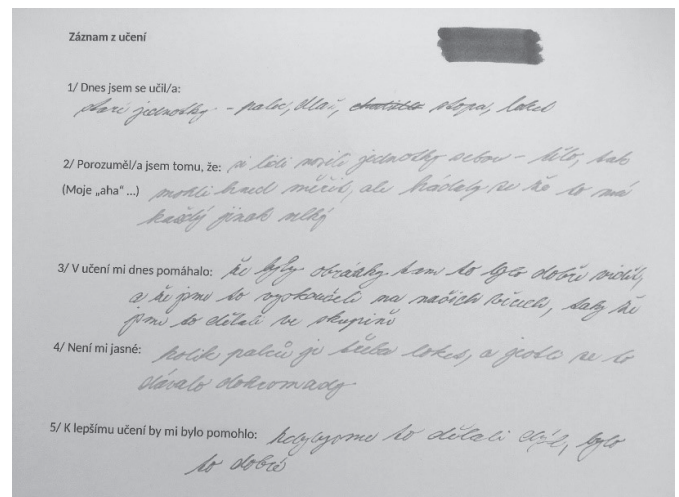 Záznam z učení
1/ Dnes jsem se učil/a:
staré jednotky - palec, dlaň, stopa, loket
2/ Porozuměl/a jsem tomu, že: si lidi nosili jednotky sebou - tělo, tak
(Moje „aha“ ...) mohli hned měřit, ale hádaly se že to má
každý jinak velký
3/ V učení mi dnes pomáhalo: že byly obrázky tam to bylo dobře vidět,
a že jsme to vyskoušeli na našich věcech, taky že
jsme to dělali ve skupině
4/ Není mi jasné: kolik palců je třeba loket, a jestli se to
dávalo dohromady
5/ K lepšímu učení by mi bylo pomohlo: kdybysme to dělali dýl, bylo
to dobré